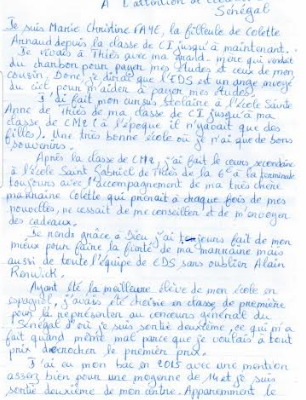 A l'attention de
Sénégal
Je suis Marie Christine FAYE, la filleule de Colette
Arnaud depuis la classe de CI jusqu'à maintenant.
Je vivais à Thiès avec ma grand. mère qui vendait
du charbon pour payer mes études et ceux de mon
cousin. Donc je dirais que l'EDS est un ange envoyé
du ciel pour m'aider à payer mes études.
J'ai fait mon cursus scolaire à l'école Sainte
Anne de Thiès de ma classe de CI jusqu'à ma
classe de CM2 (à l'époque il n'y avait que des
filles). Une très bonne école où je n'ai que de bons
souvenirs.
Après la classe de CM2, j'ai fait le cours secondaire
à l'école Saint Gabriel de Thiès de la 6e à la terminale
toujours avec l'accompagnement de ma très chère
marraine Colette qui prenait à chaque fois de mes
nouvelles, ne cessait de me conseiller et de m'envoyer
des cadeaux.
Je rends grâce à Dieu j'ai toujours fait de mon
mieux pour faire la fierté de ma marraine mais
aussi de toute l'équipe de EDS sans oublier Alain
Ayant été la meilleure élève de mon école en
espagnol, j'avais été choisie en classe de première
pour la représenter au concours général du
Sénégal d'où je suis sortie deuxième, ce qui m'a
fait quand même mal parce que je voulais à tout
prix décrocher le premier prix.
J'ai eu mon bac en 2015 avec une mention
assez bien pour une moyenne de 14 et je suis
sortie deuxième de mon centre. Apparemment le